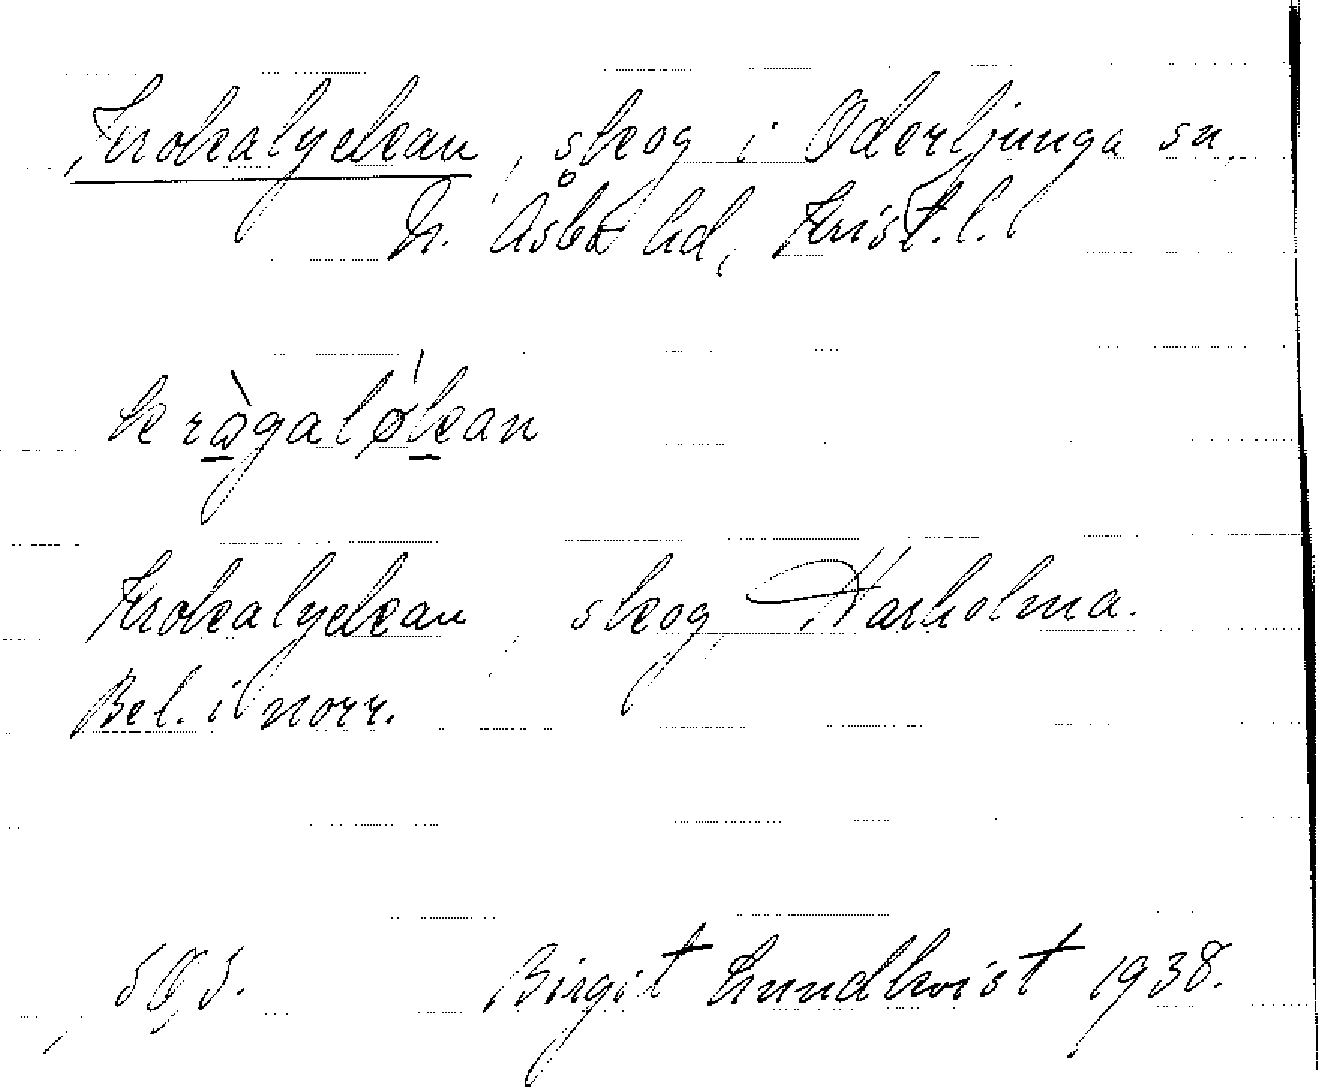 Krokalyckan, skog i Oderljunga sn,
N. Åsbo hd, Krist. l.
kràgaløkan
Krokalyckan, skog, Harholma.
Bel. i norr.
Birgit Lundkvist 1938.